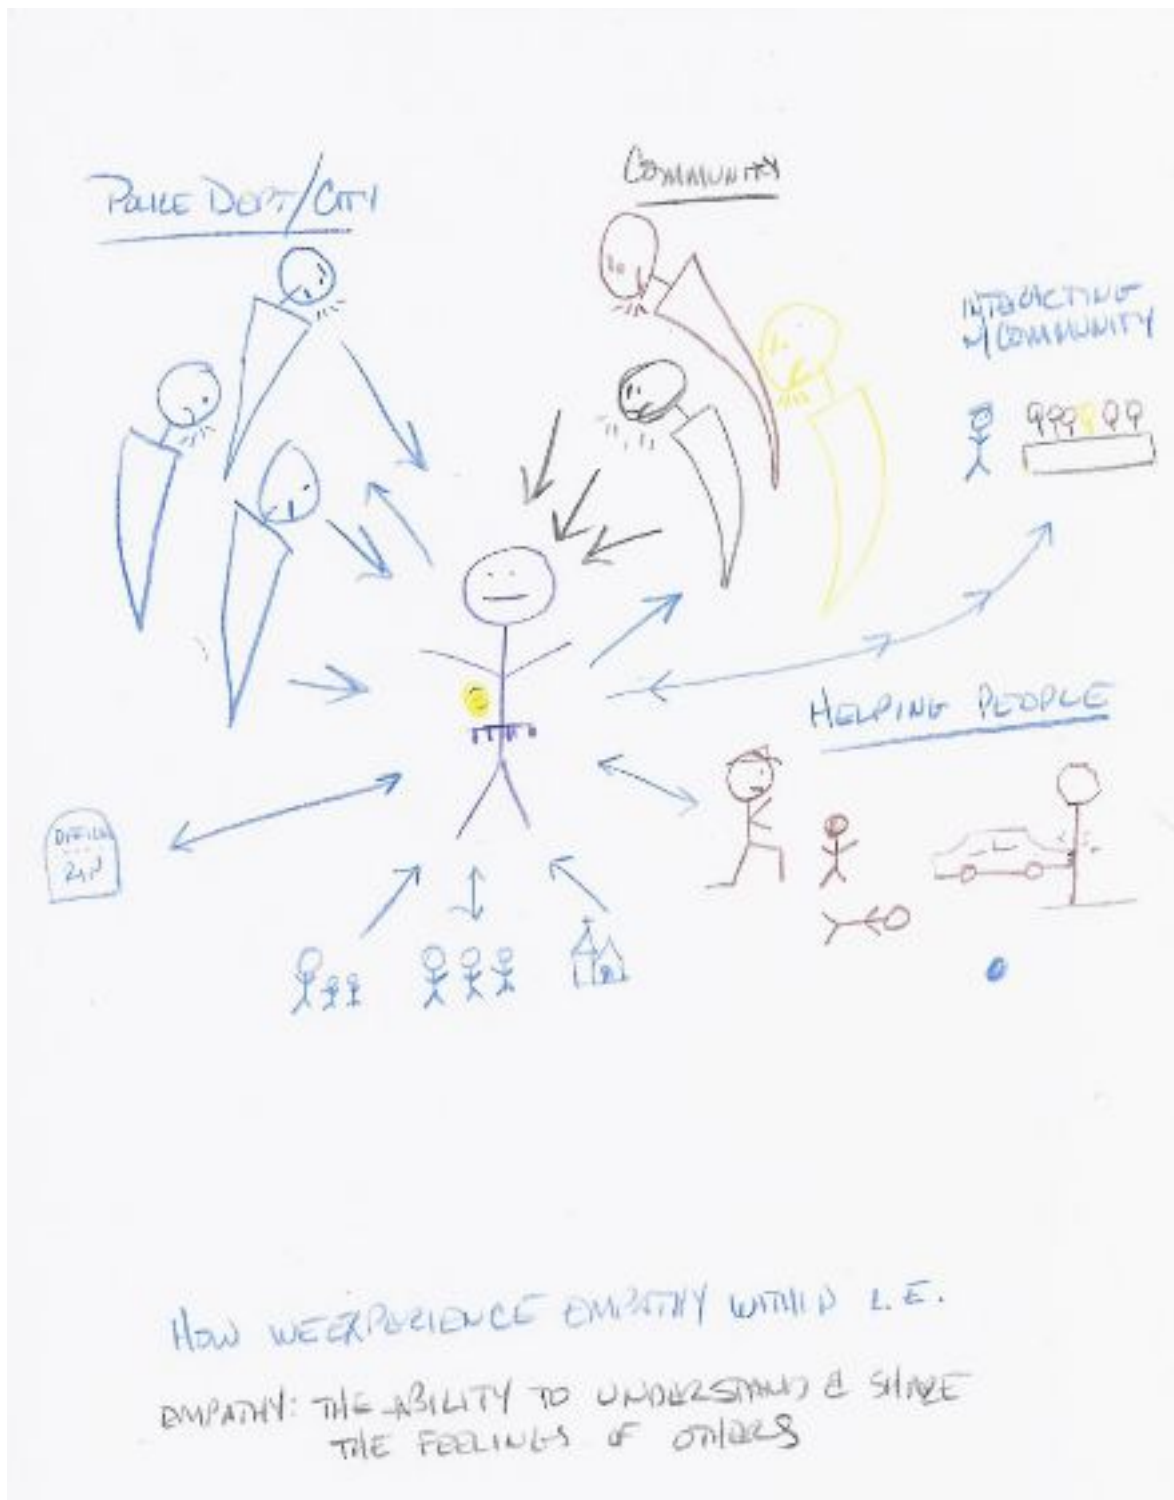 POLICE DEPT/CITY
COMMUNITY
INTERACTING
W/COMMUNITY
HELPING PEOPLE
HOW WE EXPERIENCE EMPATHY WITHIN L.E.
EMPATHY: THE ABILITY TO UNDERSTAND & SHARE
THE FEELINGS OF OTHERS